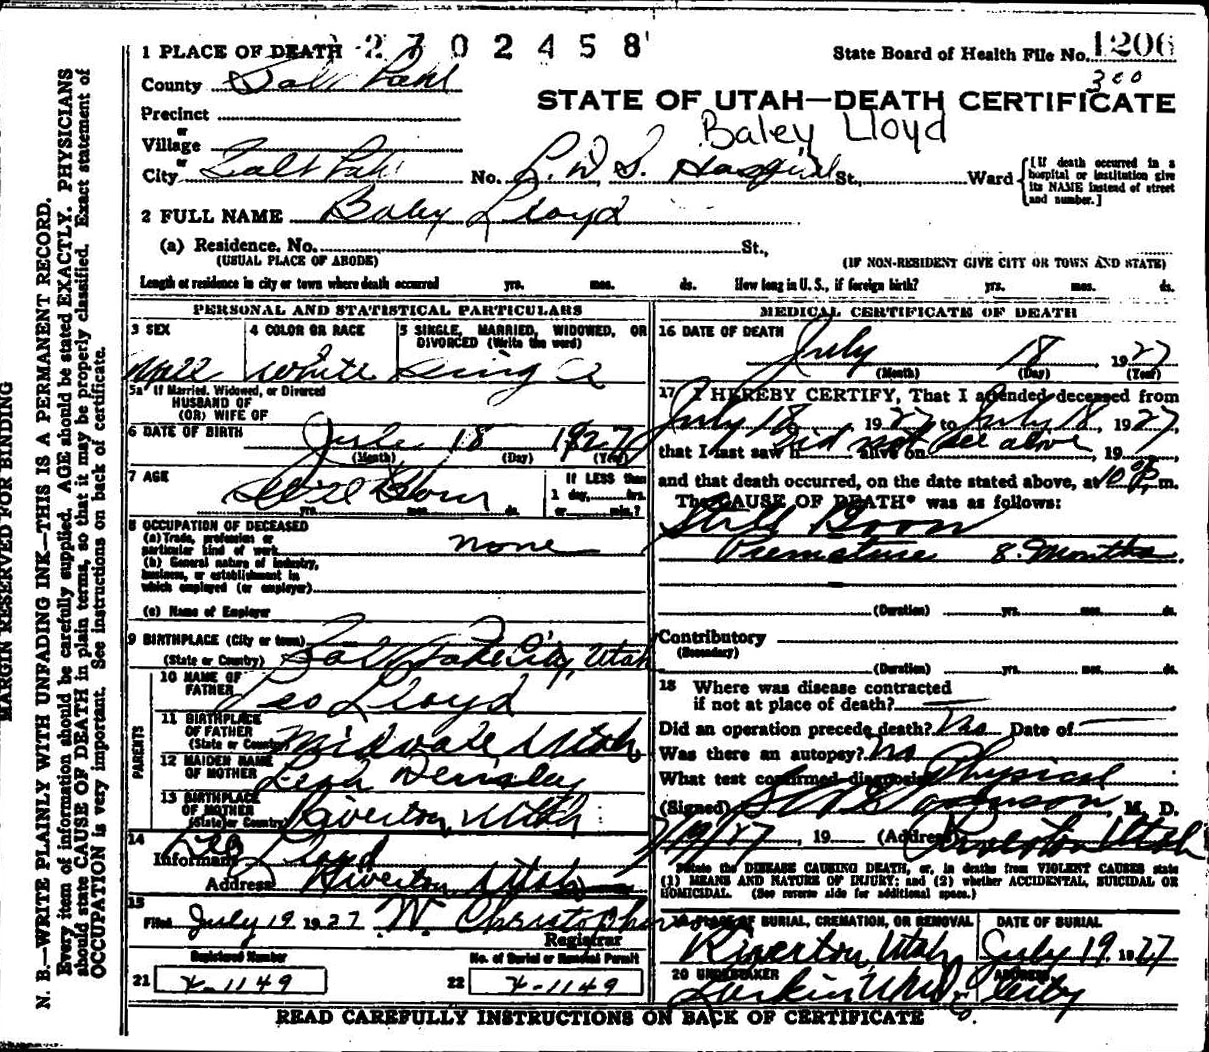 MARGIN RESERVED FOR BINDING
N. B.—WRITE PLAINLY WITH UNFADING INK—THIS IS A PERMANENT RECORD.
Every item of information should be carefully supplied. AGE should be stated EXACTLY. PHYSICIANS
should state CAUSE OF DEATH in plain terms, so that it may be properly classified. Exact statement of
OCCUPATION is very important. See instructions on back of certificate.
2702458
State Board of Health File No. 1206
300
1 PLACE OF DEATH
County Salt Lake
STATE OF UTAH—DEATH CERTIFICATE
Precinct
Baley Lloyd
or
Village
or
City Salt Lake No. L. D. S. Hospital St., Ward
[If death occurred in a hospital or institution give its NAME instead of street and number.]
2 FULL NAME Baley Lloyd
(a) Residence. No. St.,
(USUAL PLACE OF ABODE) (IF NON-RESIDENT GIVE CITY OR TOWN AND STATE)
Length of residence in city or town where death occurred yrs. mos. ds. How long in U. S., if foreign birth? yrs. mos. ds.
PERSONAL AND STATISTICAL PARTICULARS
3 SEX
4 COLOR OR RACE White
5 SINGLE, MARRIED, WIDOWED, OR DIVORCED (Write the word)
5a If Married, Widowed, or Divorced
HUSBAND OF
(OR) WIFE OF
6 DATE OF BIRTH 18 1927
(Month) (Day) (Year)
7 AGE
yrs. mos. ds.
If LESS than
1 day, hrs.
or min.?
8 OCCUPATION OF DECEASED
(a) Trade, profession or
particular kind of work none
(b) General nature of industry,
business, or establishment in
which employed (or employer)
(c) Name of Employer
9 BIRTHPLACE (City or town)
(State or Country) Salt Lake City, Utah
PARENTS
10 NAME OF FATHER Leo Lloyd
11 BIRTHPLACE OF FATHER (State or Country) Midvale Utah
12 MAIDEN NAME OF MOTHER
13 BIRTHPLACE OF MOTHER (State or Country) Riverton, Utah
14
Informant Leo Lloyd
Address Riverton, Utah
15
Filed July 19 1927
Registrar
Registered Number
21
No. of Burial or Removal Permit
22
MEDICAL CERTIFICATE OF DEATH
16 DATE OF DEATH
July 18, 1927
(Month) (Day) (Year)
17 I HEREBY CERTIFY, That I attended deceased from
July 18, 1927, to July 18, 1927,
that I last saw h alive on , 19 ,
did not see alive
and that death occurred, on the date stated above, at 10 P. m.
The CAUSE OF DEATH* was as follows:
Still Born
Premature 8 months
(Duration) yrs. mos. ds.
Contributory
(Secondary)
(Duration) yrs. mos. ds.
18 Where was disease contracted
if not at place of death?
Did an operation precede death? No Date of
Was there an autopsy? No
What test confirmed diagnosis Physical
(Signed) M. D.
7/19/27, 19 (Address) Riverton Utah
*State the DISEASE CAUSING DEATH, or, in deaths from VIOLENT CAUSES state
(1) MEANS AND NATURE OF INJURY; and (2) whether ACCIDENTAL, SUICIDAL OR
HOMICIDAL. (See reverse side for additional space.)
19 PLACE OF BURIAL, CREMATION, OR REMOVAL
Riverton, Utah
DATE OF BURIAL
July 19, 1927
20 UNDERTAKER
ADDRESS
City
READ CAREFULLY INSTRUCTIONS ON BACK OF CERTIFICATE